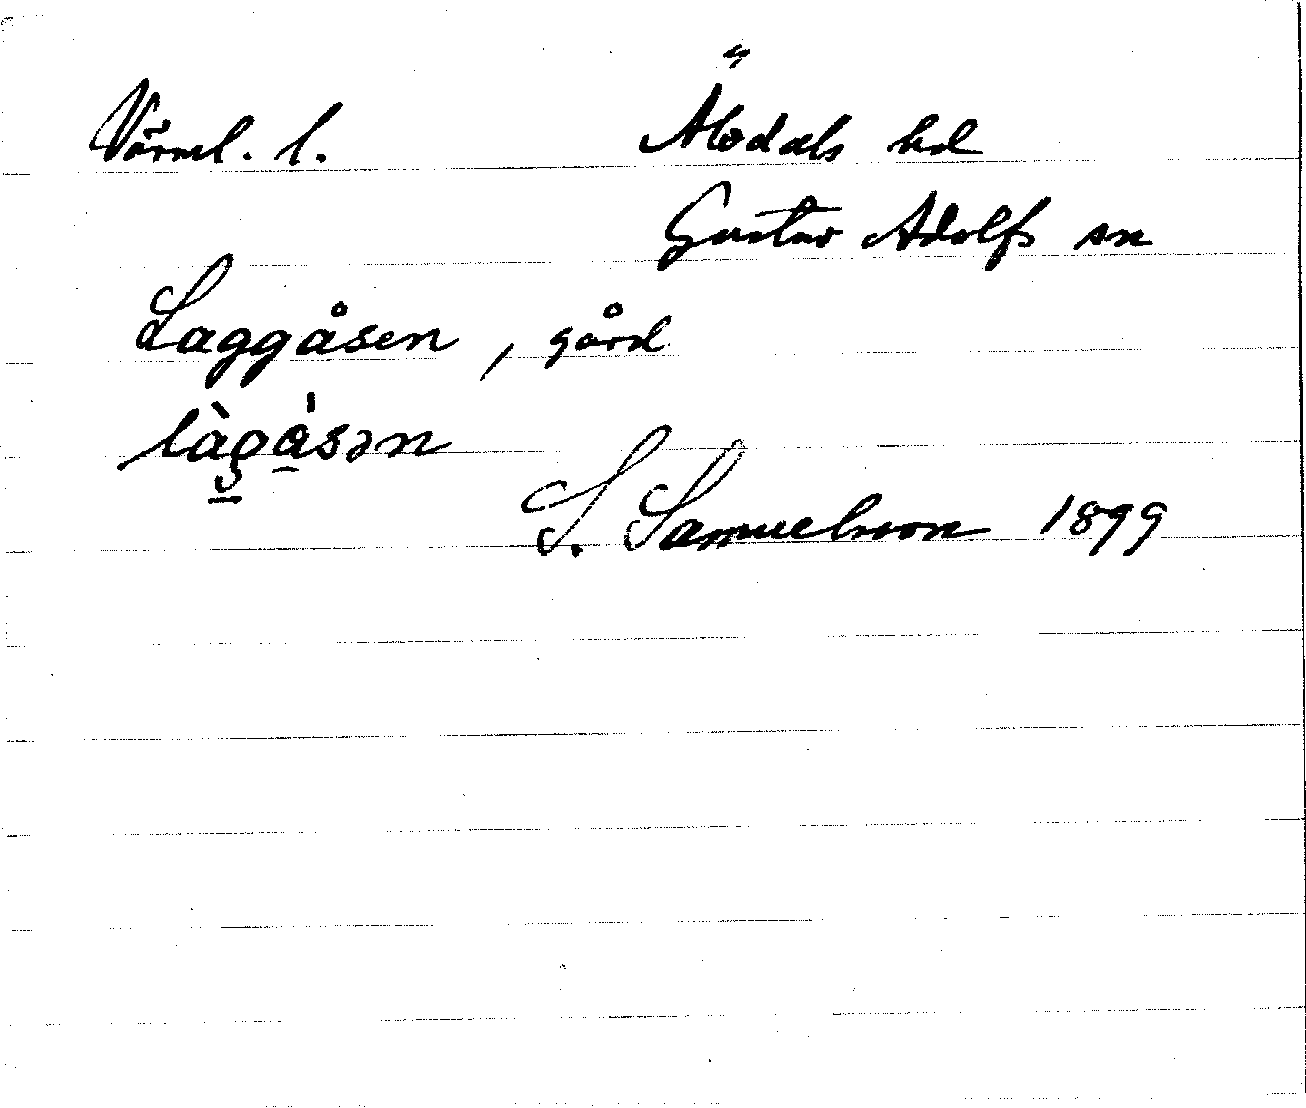 Värml. l. Älvdals hd
Gustav Adolfs sn
Laggåsen, gård
làg̠á̠sən
S. Samuelsson 1899